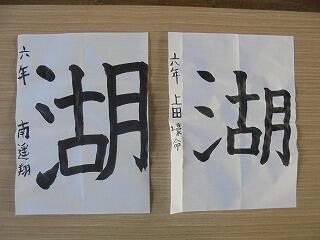 湖
六年 南遥翔
湖
六年 上田